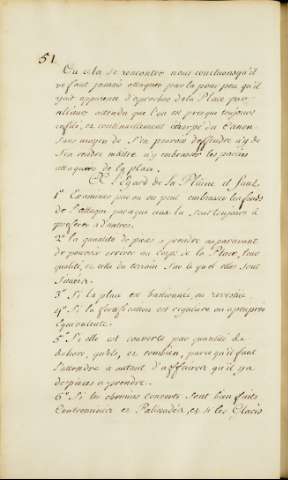 51
Ou cela se rencontre nous tenons qu'il
ne faut jamais attaquer pour la peu peu qu'il
y ait apparence d'approcher de la Place par
ailleurs attendu que l'on est presque toujours
enfilé, et continuellement du Canon
Sans moyen de S'en pouvoir deffendre n'y de
S'en rendre maitre n'y embrasser les parties
attaquées de la place.
A L'egard de la Plaine il faut
1° Examiner par ou on peut embrasser les fronds
de l'attaque parceque cela la Seul toujours a
preferer a d'autres.
2° la quantité de pieces a prendre auparavant
de pouvoir arriver au Corps de la Place, leur
qualité, et celle du terrain Sur le quel elles Sont
Scituées.
3° Si la place est bastionnée, ou revestue
4° Si la fortification est reguliere ou apeuprés
equivalente.
5° Si elle est couverte par quantité de
dehors, quels, et combien, parce qu'il faut
S'attendre a autant d'affaires qu'il y a
de pieces a prendre.
6° Si les chemins couverts Sont bien faits
Contreminés et Palissadés, et si les Glacis